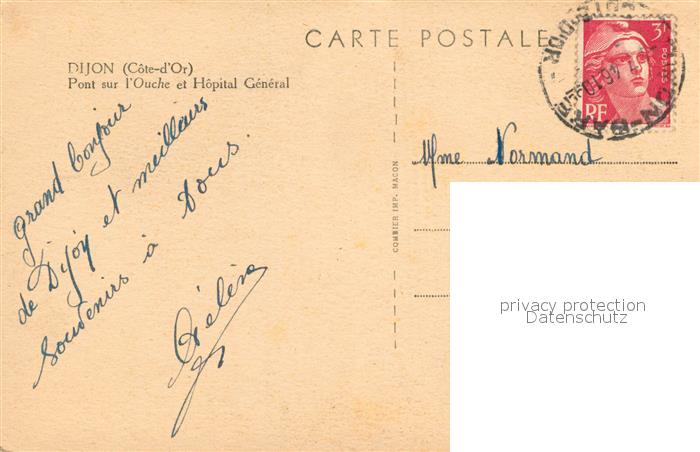 CARTE POSTALE
DIJON (Côte-d'Or)
Pont sur l'Ouche et Hôpital Général
3F
POSTES
RF
Grand bonjour
de Dijon et meilleurs
souvenirs à tous.
Mme Normand
COMBIER IMP. MACON
privacy protection
Datenschutz